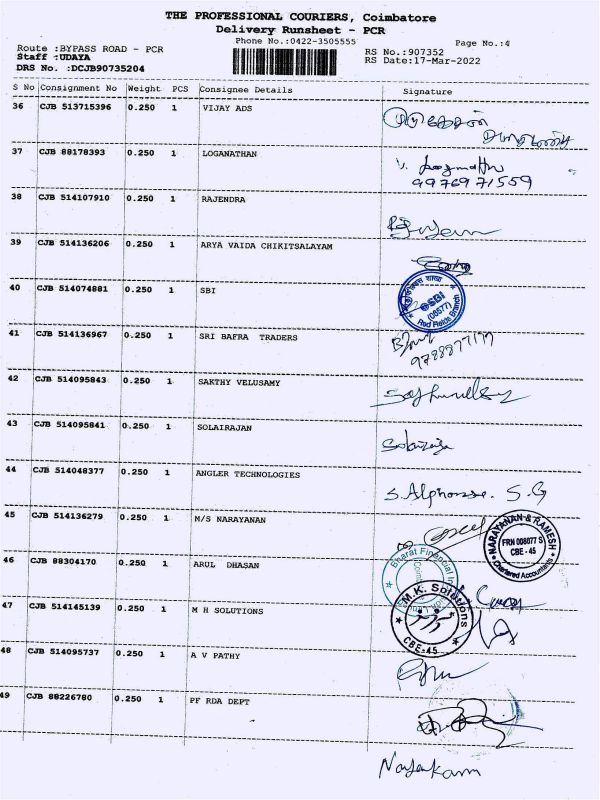 THE PROFESSIONAL COURIERS, Coimbatore
Delivery Runsheet - PCR
Phone No.:0422-3505555
Page No.:4
Route :BYPASS ROAD - PCR
RS No.:907352
Staff :UDAYA
RS Date:17-Mar-2022
DRS No. :DCJB90735204
S No Consignment No Weight PCS Consignee Details Signature
36 CJB 513715396 0.250 1 VIJAY ADS
37 CJB 88178393 0.250 1 LOGANATHAN
9976971559
38 CJB 514107910 0.250 1 RAJENDRA
39 CJB 514136206 0.250 1 ARYA VAIDA CHIKITSALAYAM
40 CJB 514074881 0.250 1 SBI
SBI
(00577)
Red Fields Branch
41 CJB 514136967 0.250 1 SRI BAFRA TRADERS
42 CJB 514095843 0.250 1 SAKTHY VELUSAMY
43 CJB 514095841 0.250 1 SOLAIRAJAN
44 CJB 514048377 0.250 1 ANGLER TECHNOLOGIES
S. Alphonse. S. G
45 CJB 514136279 0.250 1 M/S NARAYANAN
NARAYANAN & RAMESH
FRN 008077 S
CBE - 45
Chartered Accountants
46 CJB 88304170 0.250 1 ARUL DHASAN
Bharat Financial
47 CJB 514145139 0.250 1 M H SOLUTIONS
M.K. Solutions
CBE-45
48 CJB 514095737 0.250 1 A V PATHY
49 CJB 88226780 0.250 1 PF RDA DEPT